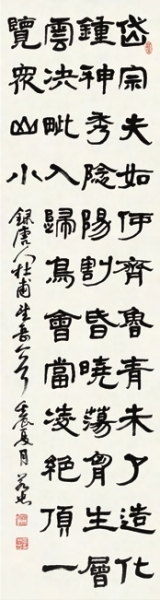 岱宗夫如何齊魯青未了造化
鍾神秀陰陽割昏曉蕩胷生層
雲决眦入歸鳥會當凌絕頂一
覽衆山小
録唐人杜甫望岳 壬辰夏月